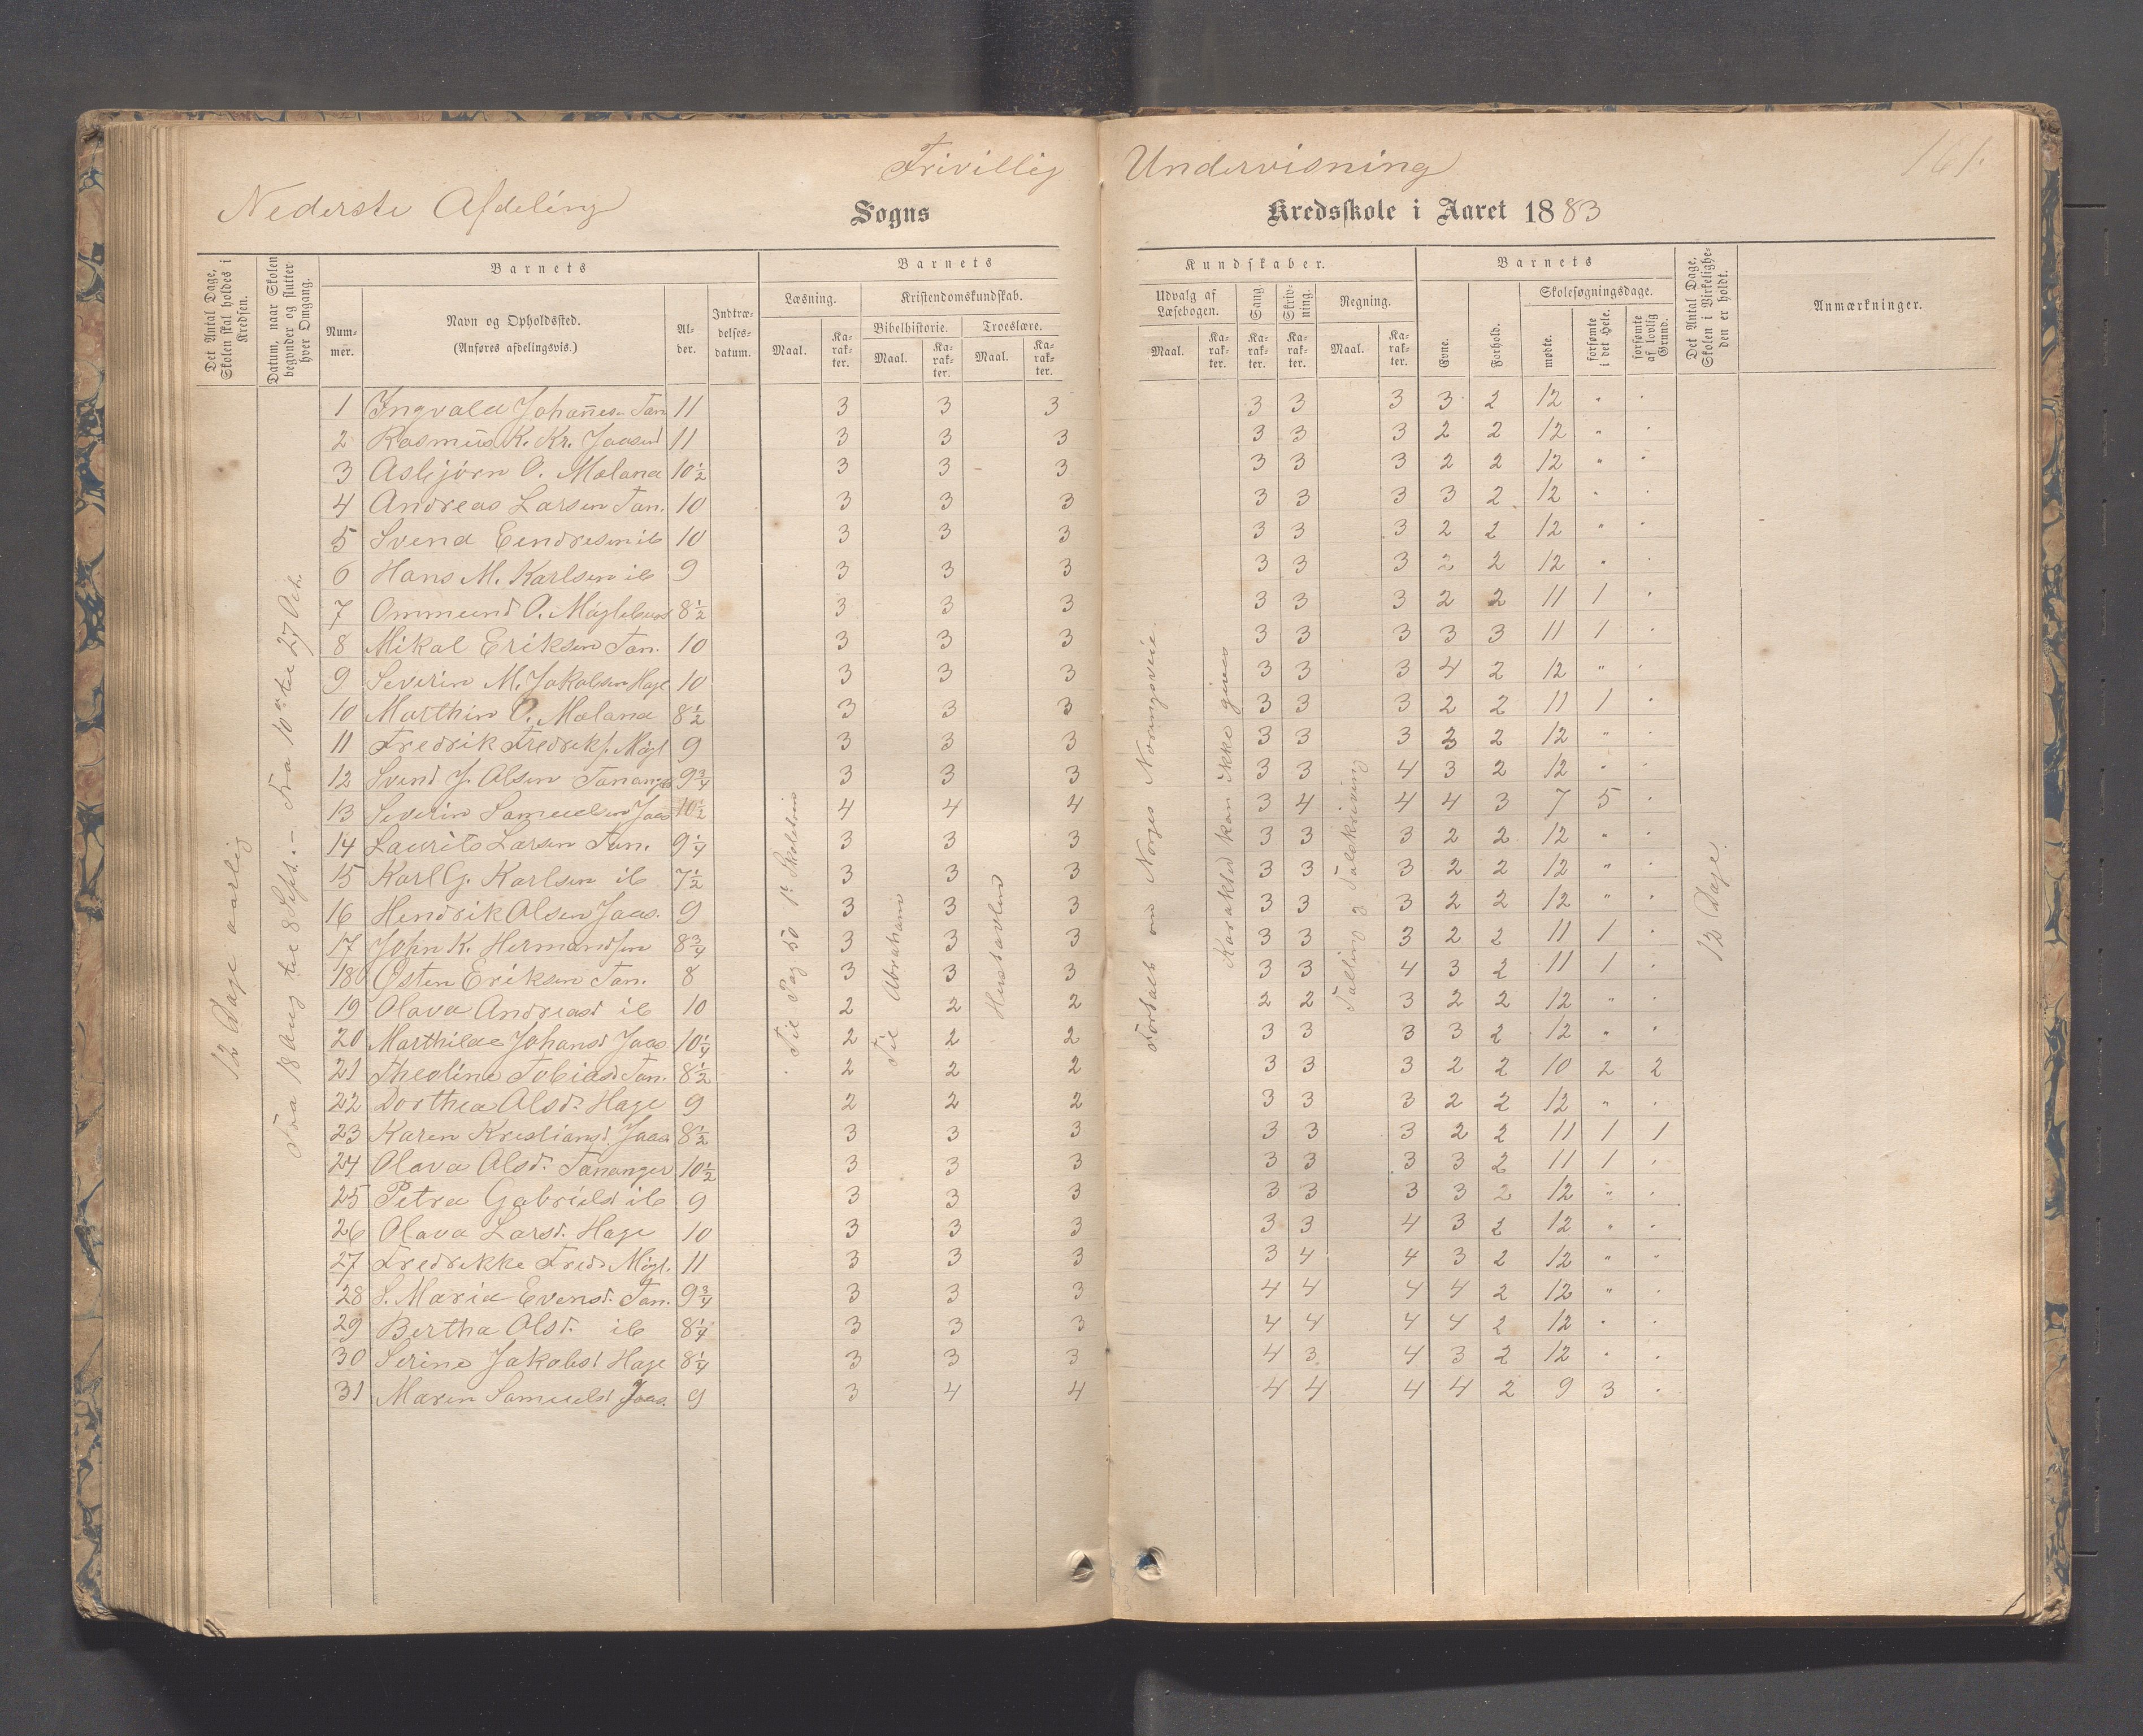 Frivillig Undervisning
161.
Nederste Afdeling
Sogns
Kredsskole i Aaret 1883
Det Antal Dage, Skolen skal holdes i Kredsen.
Datum, naar Skolen begynder og slutter hver Omgang.
Barnets
Num-mer.
Navn og Opholdssted.
(Anføres afdelingsvis.)
Al-der.
Indtræ-delses-datum.
Barnets
Læsning.
Kristendomskundskab.
Bibelhistorie.
Troeslære.
Maal.
Ka-rak-ter.
Maal.
Ka-rak-ter.
Maal.
Ka-rak-ter.
Kundskaber.
Udvalg af Læsebogen.
Sang.
Skriv-ning.
Regning.
Maal.
Ka-rak-ter.
Ka-rak-ter.
Ka-rak-ter.
Maal.
Ka-rak-ter.
Barnets
Evne.
Forhold.
Skolesøgningsdage.
mødte.
forsømte i det Hele.
forsømte af lovlig Grund.
Det Antal Dage, Skolen i Virkelighe-den er holdt.
Anmærkninger.
12 Dage aarlig
Fra 18 Aug til 8 Sept. - Fra 10de til 27 Okt.
Til Pag 50 1ste Skoletrin
Til Abraham
Fortalt om Norges Næringsveie
Karakter kan ikke gives
Tælling og Talskrivning
12 Dage.
1 Ingvald Johannesen Tan 11 3 3 3 3 3 3 3 2 12 " "
2 Rasmus K. Kr. Jaasund 11 3 3 3 3 3 3 2 2 12 " "
3 Asbjørn O. Meland 10½ 3 3 3 3 3 3 2 2 12 " "
4 Andreas Larsen Tan. 10 3 3 3 3 3 3 3 2 12 " "
5 Svend Eendresen ib 10 3 3 3 3 3 3 2 2 12 " "
6 Hans M. Karlsen ib 9 3 3 3 3 3 3 2 2 12 " "
7 Ommund O. Møglebust 8½ 3 3 3 3 3 3 2 2 11 1 "
8 Mikal Eriksen Tan. 10 3 3 3 3 3 3 3 3 11 1 "
9 Severin M. Jakobsen Hage 10 3 3 3 3 3 3 4 2 12 " "
10 Marthin O. Meland 8½ 3 3 3 3 3 3 2 2 11 1 "
11 Fredrik Fredriks. Møgl 9 3 3 3 3 3 3 2 2 12 " "
12 Svend J. Olsen Tananger 9¾ 3 3 3 3 3 4 3 2 12 " "
13 Severin Samuelsen Jaas 10½ 4 4 4 3 4 4 4 3 7 5 "
14 Laurits Larsen Tan. 9¼ 3 3 3 3 3 3 2 2 12 " "
15 Karl G. Karlsen ib 7½ 3 3 3 3 3 3 2 2 12 " "
16 Hendrik Olsen Jaas. 9 3 3 3 3 3 3 2 2 12 " "
17 John K. Hermandsen 8¾ 3 3 3 3 3 3 2 2 11 1 "
18 Østen Eriksen Tan. 8 3 3 3 3 3 4 3 2 11 1 "
19 Olava Andreasd ib 10 2 2 2 2 2 3 2 2 12 " "
20 Marthilde Johansd Jaas. 10¼ 2 2 2 3 3 3 3 2 12 " "
21 Theoline Tobiasd Tan. 8½ 2 2 2 3 3 3 2 2 10 2 2
22 Dorthea Olsd. Hage 9 2 2 2 3 3 3 2 2 12 " "
23 Karen Kristiansd Jaas. 8½ 3 3 3 3 3 3 2 2 11 1 1
24 Olava Olsd. Tananger 10½ 3 3 3 3 3 3 3 2 11 1 "
25 Petra Gabrielsd ib 9 3 3 3 3 3 3 3 2 12 " "
26 Olava Larsd. Hage 10 3 3 3 3 3 4 3 2 12 " "
27 Fredrikke Fredr Møgl. 11 3 3 3 3 4 4 3 2 12 " "
28 S. Maria Evensd. Tan. 9¾ 3 3 3 4 4 4 4 2 12 " "
29 Bertha Olsd. ib 8¼ 3 3 3 4 4 4 4 2 12 " "
30 Serine Jakobsd Hage 8¼ 3 3 3 4 3 4 3 2 12 " "
31 Maren Samuelsd Jaas. 9 3 4 4 4 4 4 4 2 9 3 "